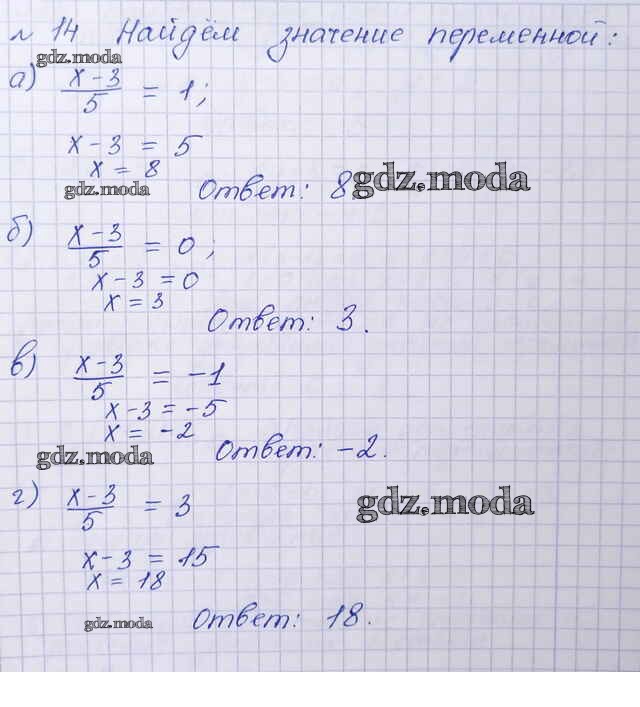 № 14 Найдём значение переменной:
gdz.moda
а) x-3/5 = 1;
x-3 = 5
x = 8
gdz.moda
Ответ: 8.
gdz.moda
б) x-3/5 = 0;
x-3 = 0
x = 3
Ответ: 3.
в) x-3/5 = -1
x-3 = -5
x = -2
gdz.moda
Ответ: -2.
г) x-3/5 = 3
gdz.moda
x-3 = 15
x = 18
gdz.moda
Ответ: 18.